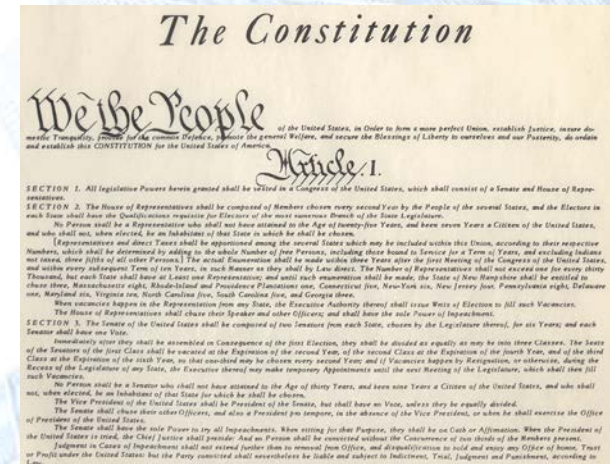 The Constitution
We the People of the United States, in Order to form a more perfect Union, establish Justice, insure do-
mestic Tranquility, provide for the common Defence, promote the general Welfare, and secure the Blessings of Liberty to ourselves and our Posterity, do ordain
and establish this CONSTITUTION for the United States of America.
Article. I.
SECTION 1. All legislative Powers herein granted shall be vested in a Congress of the United States, which shall consist of a Senate and House of Repre-
sentatives.
SECTION 2. The House of Representatives shall be composed of Members chosen every second Year by the People of the several States, and the Electors in
each State shall have the Qualifications requisite for Electors of the most numerous Branch of the State Legislature.
No Person shall be a Representative who shall not have attained to the Age of twenty-five Years, and been seven Years a Citizen of the United States,
and who shall not, when elected, be an Inhabitant of that State in which he shall be chosen.
[Representatives and direct Taxes shall be apportioned among the several States which may be included within this Union, according to their respective
Numbers, which shall be determined by adding to the whole Number of free Persons, including those bound to Service for a Term of Years, and excluding Indians
not taxed, three fifths of all other Persons.] The actual Enumeration shall be made within three Years after the first Meeting of the Congress of the United States,
and within every subsequent Term of ten Years, in such Manner as they shall by Law direct. The Number of Representatives shall not exceed one for every thirty
Thousand, but each State shall have at Least one Representative; and until such enumeration shall be made, the State of New Hampshire shall be entitled to
chuse three, Massachusetts eight, Rhode-Island and Providence Plantations one, Connecticut five, New-York six, New Jersey four, Pennsylvania eight, Delaware
one, Maryland six, Virginia ten, North Carolina five, South Carolina five, and Georgia three.
When vacancies happen in the Representation from any State, the Executive Authority thereof shall issue Writs of Election to fill such Vacancies.
The House of Representatives shall chuse their Speaker and other Officers; and shall have the sole Power of Impeachment.
SECTION 3. The Senate of the United States shall be composed of two Senators from each State, chosen by the Legislature thereof, for six Years; and each
Senator shall have one Vote.
Immediately after they shall be assembled in Consequence of the first Election, they shall be divided as equally as may be into three Classes. The Seats
of the Senators of the first Class shall be vacated at the Expiration of the second Year, of the second Class at the Expiration of the fourth Year, and of the third
Class at the Expiration of the sixth Year, so that one-third may be chosen every second Year; and if Vacancies happen by Resignation, or otherwise, during the
Recess of the Legislature of any State, the Executive thereof may make temporary Appointments until the next Meeting of the Legislature, which shall then fill
such Vacancies.
No Person shall be a Senator who shall not have attained to the Age of thirty Years, and been nine Years a Citizen of the United States, and who shall
not, when elected, be an Inhabitant of that State for which he shall be chosen.
The Vice President of the United States shall be President of the Senate, but shall have no Vote, unless they be equally divided.
The Senate shall chuse their other Officers, and also a President pro tempore, in the absence of the Vice President, or when he shall exercise the Office
of President of the United States.
The Senate shall have the sole Power to try all Impeachments. When sitting for that Purpose, they shall be on Oath or Affirmation. When the President of
the United States is tried, the Chief Justice shall preside: And no Person shall be convicted without the Concurrence of two thirds of the Members present.
Judgment in Cases of Impeachment shall not extend further than to removal from Office, and disqualification to hold and enjoy any Office of honor, Trust
or Profit under the United States: but the Party convicted shall nevertheless be liable and subject to Indictment, Trial, Judgment and Punishment, according to
Law.